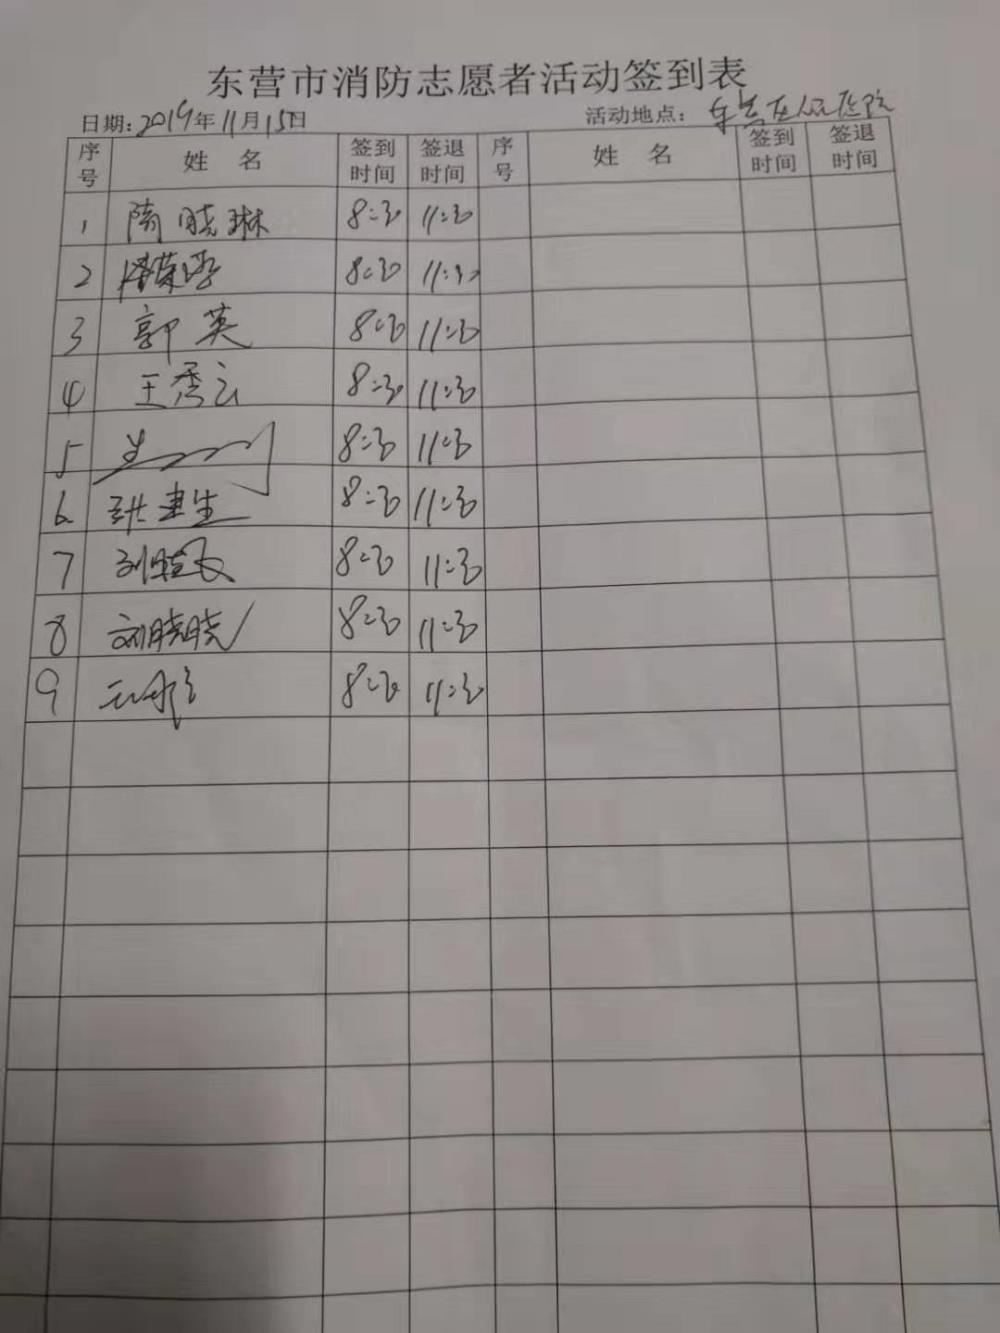 东营市消防志愿者活动签到表
日期:2019年11月15日 活动地点: 东营区人民医院
序号 姓 名 签到时间 签退时间 序号 姓 名 签到时间 签退时间
1 隋晓琳 8:30 11:30
2 8:30 11:30
3 郭英 8:30 11:30
4 王秀云 8:30 11:30
5 8:30 11:30
6 张建生 8:30 11:30
7 8:30 11:30
8 刘晓晓 8:30 11:30
9 8:30 11:30